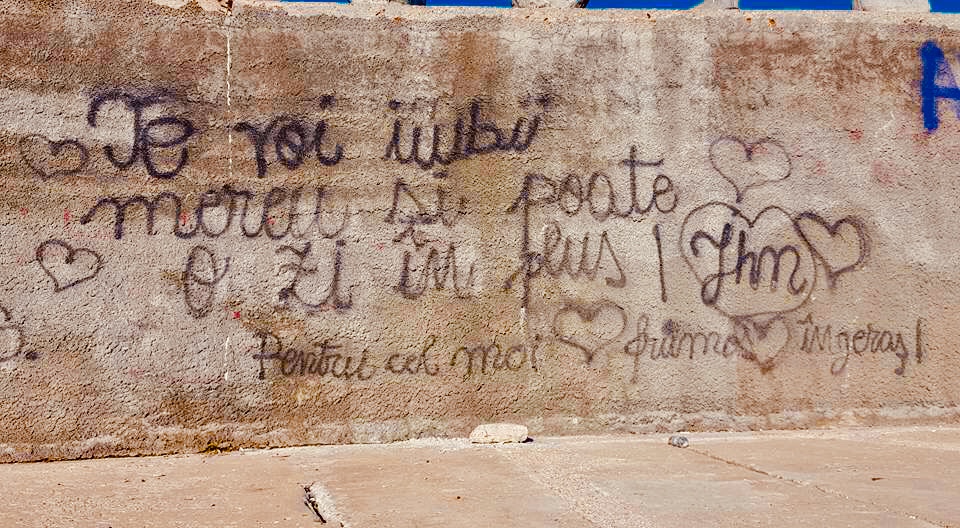 Te voi iubi
mereu si poate
o zi în plus! Jhm
Pentru cel moi frumos îngeraș!
A